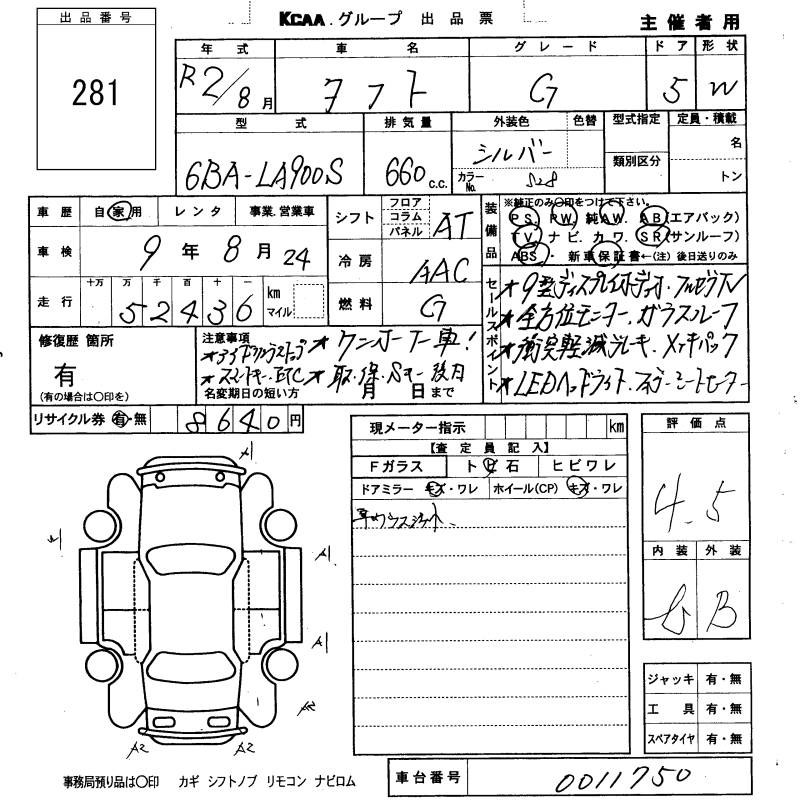 出品番号
281
KCAA.グループ 出品票
主催者用
年式 車名 グレード ドア 形状
R2/8月 タフト G 5 W
型式 排気量 外装色 色替 型式指定 定員・積載
6BA-LA900S 660 c.c. シルバー 名
カラーNo. S28 類別区分 トン
車歴 自家用 レンタ 事業.営業車
シフト フロア コラム パネル AT
装備品 ※純正のみ〇印をつけて下さい。
PS. PW. 純AW. AB(エアバック)
TV ナビ. カワ. SR(サンルーフ)
ABS . 新車保証書←(注) 後日送りのみ
車検 9年8月24
冷房 AAC
走行 十万 万 千 百 十 一
52436 km マイル
燃料 G
セールスポイント
★9型ディスプレイオーディオ・フルセグTV
★全方位モニター.ガラスルーフ
★衝突軽減ブレーキ.
★LEDヘッドライト.
修復歴 箇所
有
(有の場合は〇印を)
注意事項
★アイドリングストップ ★ワンオーナー車!
★スマートキー.ETC ★取.保.Sキー後日
名変期日の短い方 月 日まで
リサイクル券 有・無 8640円
現メーター指示 km
【査定員記入】
Fガラス トビ石 ヒビワレ
ドアミラー キズ・ワレ ホイール(CP) キズ・ワレ
評価点
4.5
内装 外装
B
A1
A1
A1
A2
A2
ジャッキ 有・無
工具 有・無
スペアタイヤ 有・無
事務局預り品は〇印 カギ シフトノブ リモコン ナビロム
車台番号 0011750